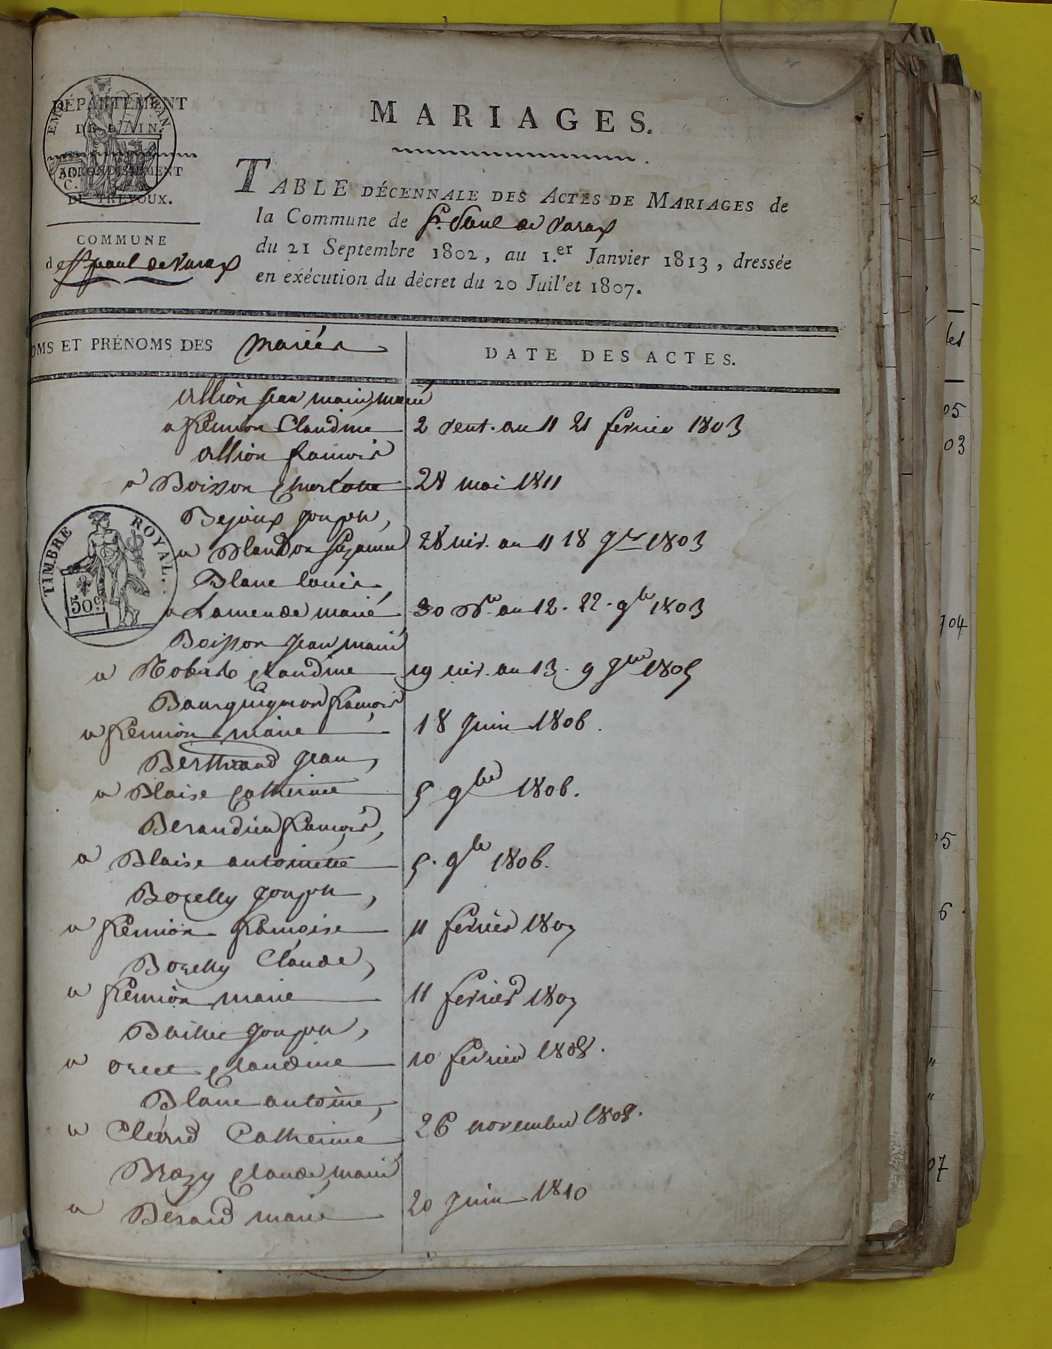 DÉPARTEMENT
DE L'AIN.
ARRONDISSEMENT
DE TRÉVOUX.
COMMUNE
de St paul de Varax
MARIAGES.
TABLE DÉCENNALE DES ACTES DE MARIAGES de
la Commune de St. Paul de Varax
du 21 Septembre 1802, au 1.er Janvier 1813, dressée
en exécution du décret du 20 Juil'et 1807.
OMS ET PRÉNOMS DES Mariés
DATE DES ACTES.
Allion jean marie marié
a ferrion Claudine 2 vent. an 11 21 fevrier 1803
Allion francois
a Boisson Charlotte 28 mai 1811
Bejoux joseph,
TIMBRE ROYAL.
50c
a Blandon Suzanne 28 niv. an 11 18 jer 1803
Blanc louis,
a Lamende marie 30 bre an 12. 22. 9bre 1803
Boisson jean marie
a Robert Claudine 19 niv. an 13. 9 jer 1805
Bourguignon francois
a ferrion marie 18 juin 1806.
Berthrand jean,
a Blaise Catherine 5 9bre 1806.
Beraudier francois,
a Blaise antoinette 5. 9bre 1806.
Borelly joseph,
a ferrion francoise 11 fevrier 1807
Borelly Claude,
a ferrion marie 11 fevrier 1807
joseph,
a Claudine 10 fevrier 1808.
Blanc antoine,
a Clerd Catherine 26 novembre 1808.
Brazy Claude marie
a Berard marie 20 juin 1810